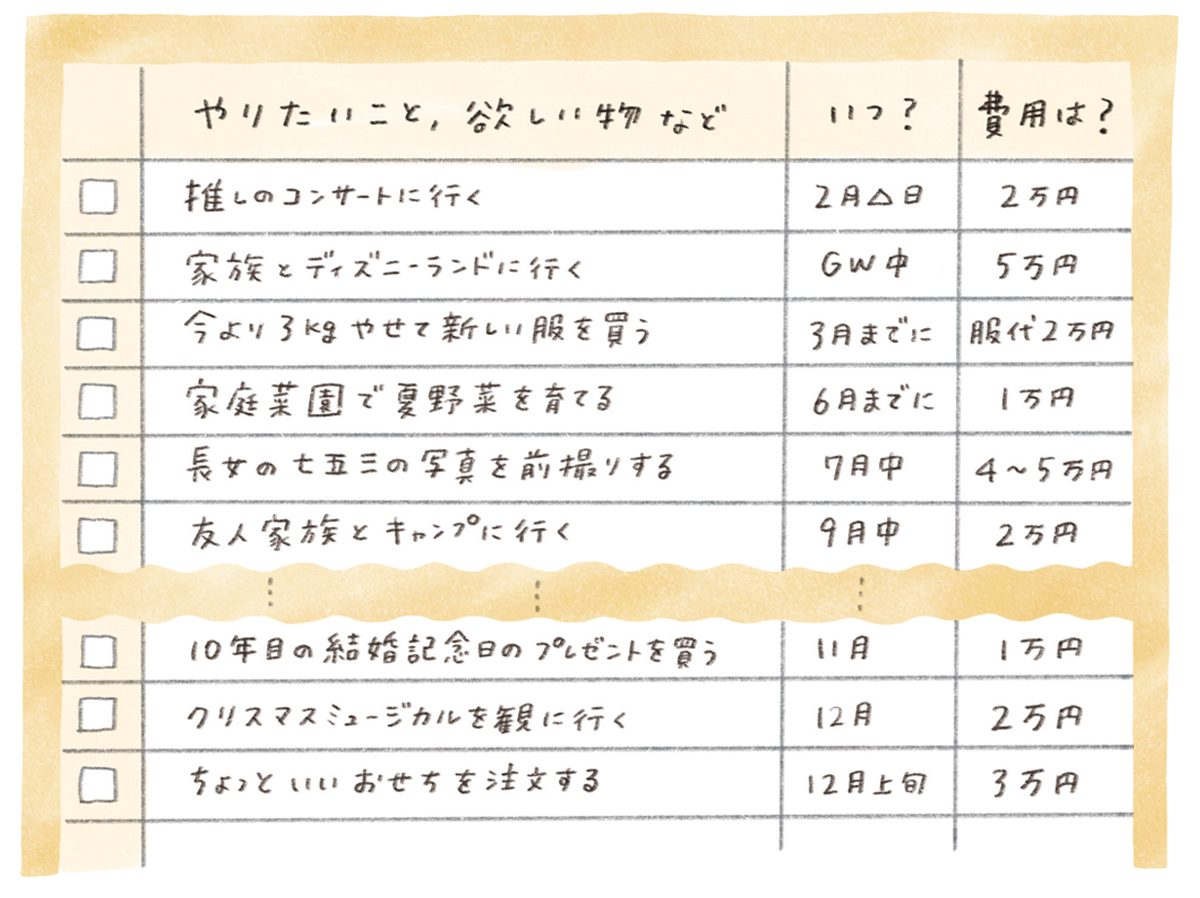 やりたいこと,欲しい物など いつ? 費用は?
推しのコンサートに行く 2月△日 2万円
家族とディズニーランドに行く GW中 5万円
今より3kgやせて新しい服を買う 3月までに 服代2万円
家庭菜園で夏野菜を育てる 6月までに 1万円
長女の七五三の写真を前撮りする 7月中 4~5万円
友人家族とキャンプに行く 9月中 2万円
10年目の結婚記念日のプレゼントを買う 11月 1万円
クリスマスミュージカルを観に行く 12月 2万円
ちょっといいおせちを注文する 12月上旬 3万円